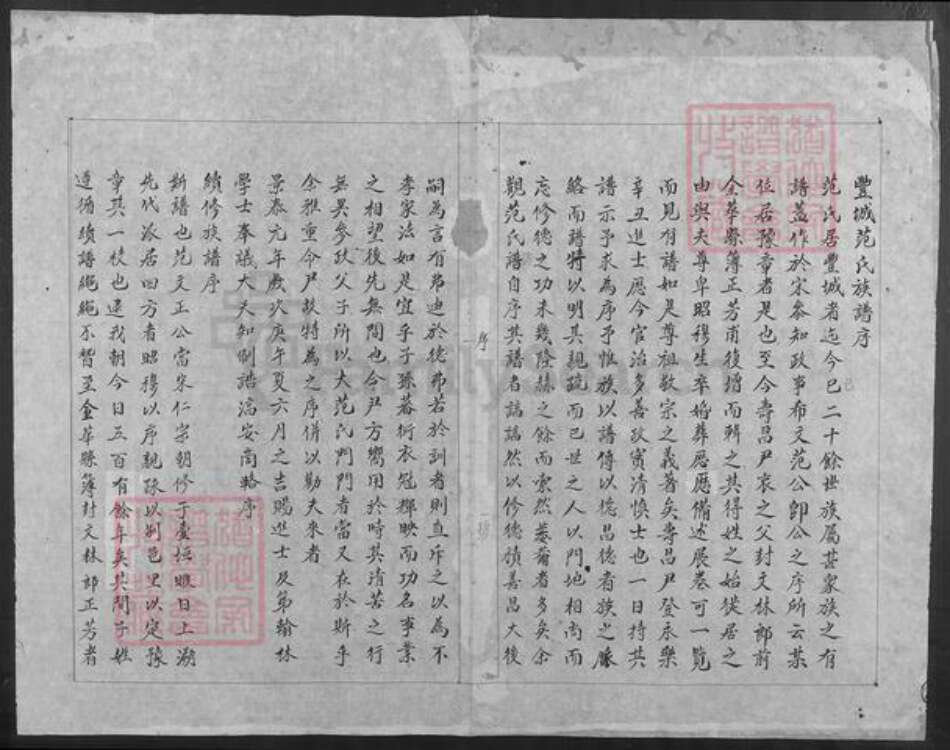 豐城范氏族譜序
范氏居豐城者迄今已二十餘世族屬甚衆族之有
譜蓋作於宋叅知政事希文范公卽公之序所云某
位居豫章者是也至今壽昌尹衷之父封文林郎前
金華縣簿正芳甫復增而輯之其得姓之始徙居之
由與夫尊卑昭穆生卒婚葬歷歷備述展卷可一覽
而見有譜如是尊祖敬宗之義著矣壽昌尹登永樂
辛丑進士應今官治多善政實清慎士也一日持其
譜示予求為序予惟族以譜傳以德昌德者族之脈
絡而譜特以明其親疏而已世之人以門地相尚而
忘修德之功未幾隆赫之餘而索然萎薾者多矣余
觀范氏譜自序其譜者諄諄然以修德積善昌大後
嗣為言有弗迪於德弗若於訓者則直斥之以為不
孝家法如是宜乎子孫蕃衍衣冠輝映而功名事業
之相望後先無間也今尹方嚮用於時其清苦之行
無異參政父子所以大范氏門閭者當又在於斯乎
余雅重令尹故特為之序併以勗夫來者
景泰元年歲次庚午夏六月之吉賜進士及第翰林
學士奉議大夫知制誥淳安商輅序
續修族譜序
斯譜也范文正公當宋仁宗朝修于慶歷暇日上溯
先代派居四方者昭穆以序親疎以別邑里以定豫
章其一枝也逮我朝今日五百有餘年矣其間子姓
遵循續譜繩繩不暫至金華縣簿封文林郎正芳者
序